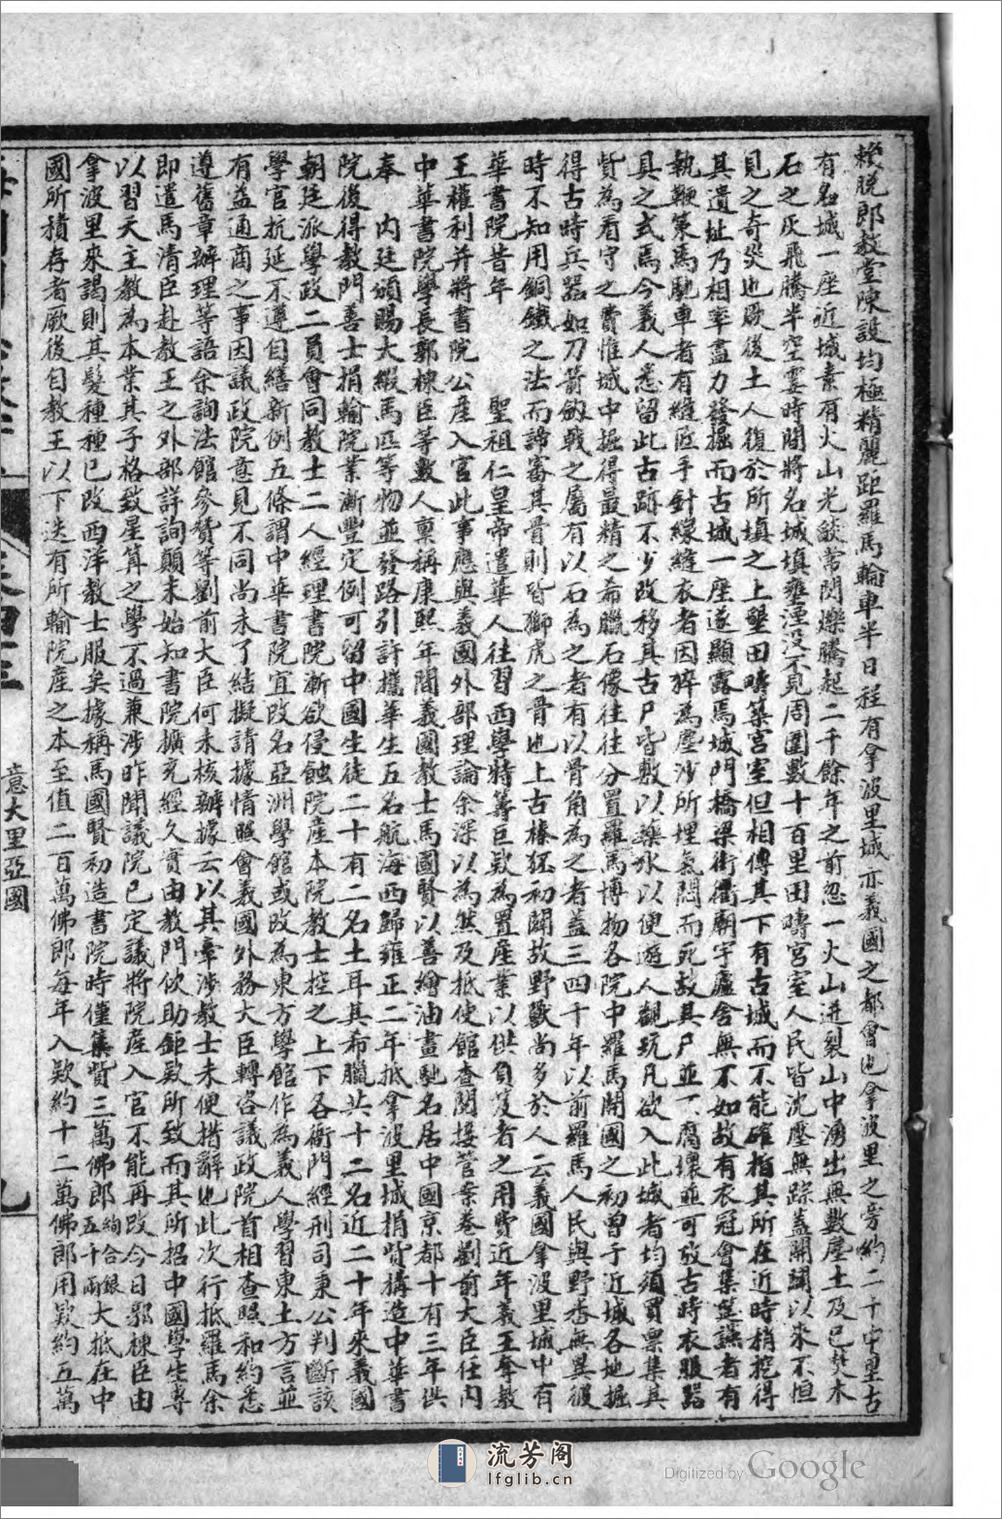 賴脫郎教堂陳設均極精麗距羅馬輪車半日程有拿波里城亦義國之都會也拿波里之旁約二十中里古
有名城一座近城素有火山光燄常閃爍騰起二千餘年之前忽一火山迸裂山中湧出無數塵土及已焚木
石之灰飛騰半空霎時間將名城填壅湮沒不見周圍數十百里田疇宮室人民皆沈壓無踪蓋開闢以來不恒
見之奇災也厥後土人復於所填之上墾田疇築宮室但相傳其下有古城而不能確指其所在近時稍挖得
其遺址乃相率盡力發掘而古城一座遂顯露焉城門橋梁街衢廟宇廬舍無不如故有衣冠會集筵讌者有
執鞭策馬馳車者有縫匠手針線縫衣者因猝為塵沙所埋氣悶而死故其尸並不腐壞並可放古時衣服器
具之式焉今義人悉留此古蹟不少改移其古尸皆敷以藥水以便遊人觀玩凡欲入此城者均須買票集其
貲為看守之費惟城中掘得最精之希臘石像往往分置羅馬博物各院中羅馬開國之初曾于近城各地掘
得古時兵器如刀箭劍戟之屬有以石為之者有以骨角為之者蓋三四十年以前羅馬人民與野番無異彼
時不知用銅鐵之法而諦審其骨則皆獅虎之骨也上古榛狉初闢故野獸尚多於人云義國拿波里城中有
華書院昔年 聖祖仁皇帝遣華人往習西學特籌巨欵為置產業以供負笈者之用費近年義王奪教
王權利并將書院公產入官此事應與義國外部理論余深以為然及抵使館查閱接管案卷劉前大臣任內
中華書院學長郭棟臣等數人稟稱康熙年間義國教士馬國賢以善繪油畫馳名居中國京都十有三年供
奉 內廷頒賜大緞馬匹等物並發路引許攜華生五名航海西歸雍正二年抵拿波里城捐貲構造中華書
院後得教門善士捐輸院業漸豐定例可留中國生徒二十有二名土耳其希臘共十二名近二十年來義國
朝廷派學政二員會同教士二人經理書院漸欲侵蝕院產本院教士控之上下各衙門經刑司秉公判斷該
學官抗延不遵自繕新例五條謂中華書院宜改名亞洲學館或改為東方學館作為義人學習東土方言並
有益通商之事因議政院意見不同尚未了結擬請據情照會義國外務大臣轉咨議政院首相查照和約悉
遵舊章辦理等語余詢法館參贊等劉前大臣何未核辦據云以其牽涉教士未便措辭也此次行抵羅馬余
即遣馬清臣赴教王之外部詳詢顛末始知書院擴充經久實由教門佽助鉅款所致而其所招中國學生專
以習天主教為本業其子格致星算之學不過兼涉昨聞議院已定議將院產入官不能再改今日郭棟臣由
拿波里來謁則其髮種種已改西洋教士服矣據稱馬國賢初造書院時僅集貲三萬佛郎約合銀五千兩大抵在中
國所積存者厥後自教王以下迭有所輸院產之本至值二百萬佛郎每年入欵約十二萬佛郎用欵約五萬
意大里亞國
九
流芳阁
lfglib.cn
Digitized by Google